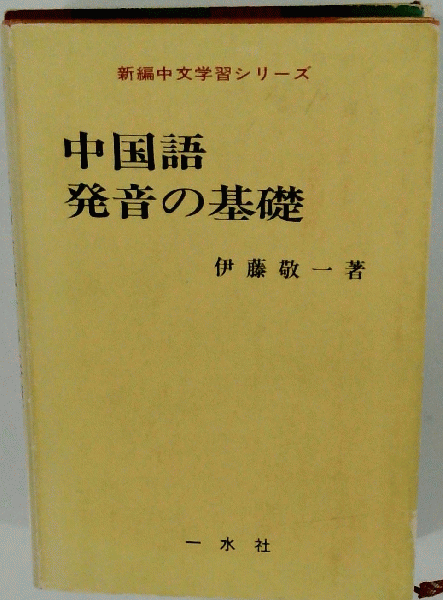 新編中文学習シリーズ
中国語
発音の基礎
伊藤敬一著
一水社